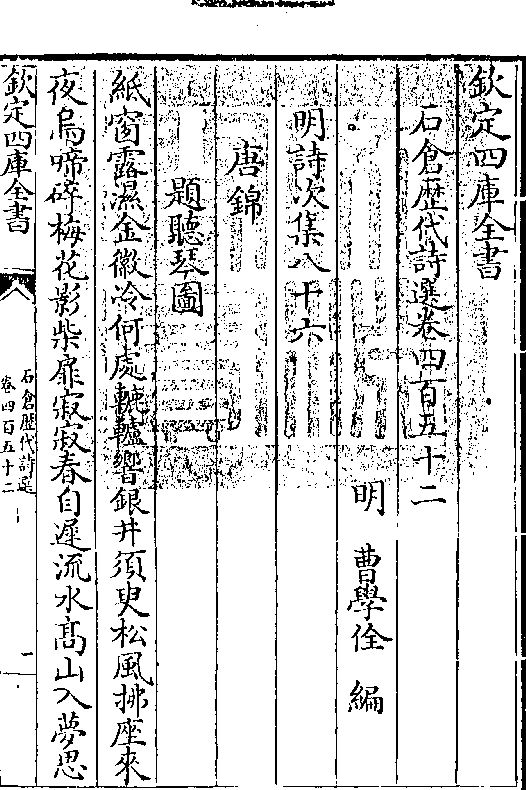 欽定四庫全書
石倉歴代詩選卷四百五十二
明 曹學佺 編
明詩次集八十六
唐錦
題聽琴圖
紙窗露濕金徽冷何處轆轤響銀井須臾松風拂座來
夜烏啼碎梅花影柴扉寂寂春自遲流水髙山入夢思
欽定四庫全書
石倉歴代詩選
卷四百五十二
一